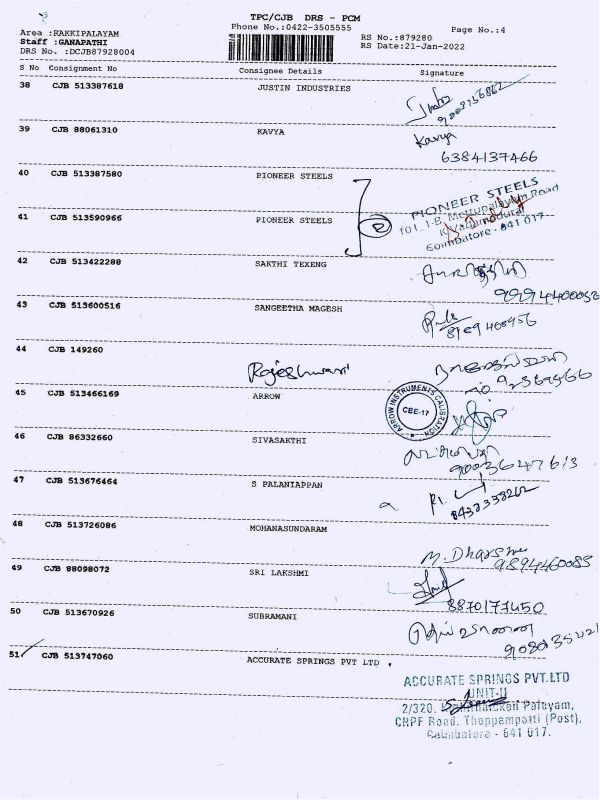 TPC/CJB DRS - PCM
Area :RAKKIPALAYAM Phone No.:0422-3505555 Page No.:4
Staff :GANAPATHI RS No.:879280
DRS No. :DCJB87928004 RS Date:21-Jan-2022
S No Consignment No Consignee Details Signature
38 CJB 513387618 JUSTIN INDUSTRIES
39 CJB 88061310 KAVYA Kavya
6384137466
40 CJB 513387580 PIONEER STEELS
PIONEER STEELS
41 CJB 513590966 PIONEER STEELS
Coimbatore - 641 017.
42 CJB 513422288 SAKTHI TEXENG
9994400052
43 CJB 513600516 SANGEETHA MAGESH
44 CJB 149260 Rajeshwari
45 CJB 513466169 ARROW
ARROW INSTRUMENTS CALIBRATION
CBE-17
46 CJB 86332660 SIVASAKTHI
9003647613
47 CJB 513676464 S PALANIAPPAN
8438338262
48 CJB 513726086 MOHANASUNDARAM
9894460083
49 CJB 88098072 SRI LAKSHMI
8870177450
50 CJB 513670926 SUBRAMANI
51 CJB 513747060 ACCURATE SPRINGS PVT LTD
ACCURATE SPRINGS PVT.LTD
UNIT-II
2/320, Palayam,
CRPF Road, Thoppampatti (Post),
Coimbatore - 641 017.